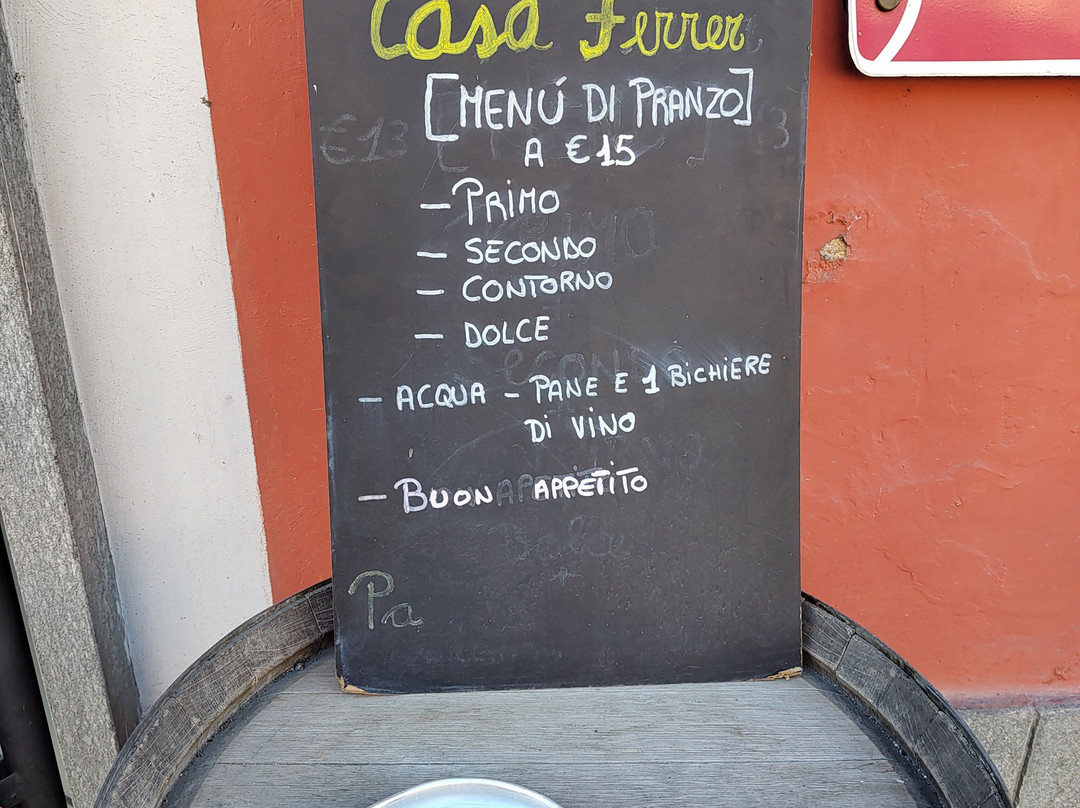 Casa Ferrer
[MENÚ DI PRANZO]
A €15
€13
- PRIMO
- SECONDO
- CONTORNO
- DOLCE
- ACQUA - PANE E 1 BICHIERE
DI VINO
- BUON APPETITO
Pa